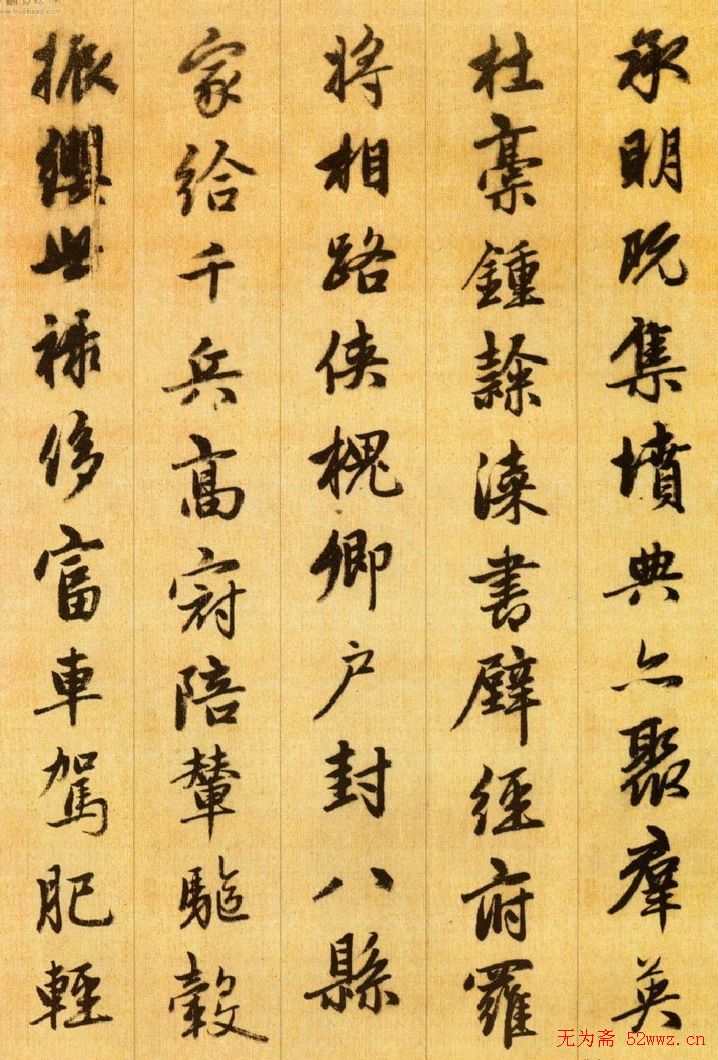 承明既集墳典亦聚羣英
杜稾鍾隸漆書壁經府羅
將相路俠槐卿户封八縣
家給千兵高冠陪輦驅轂
振纓世祿侈富車駕肥輕
无为斋 52wwz.cn